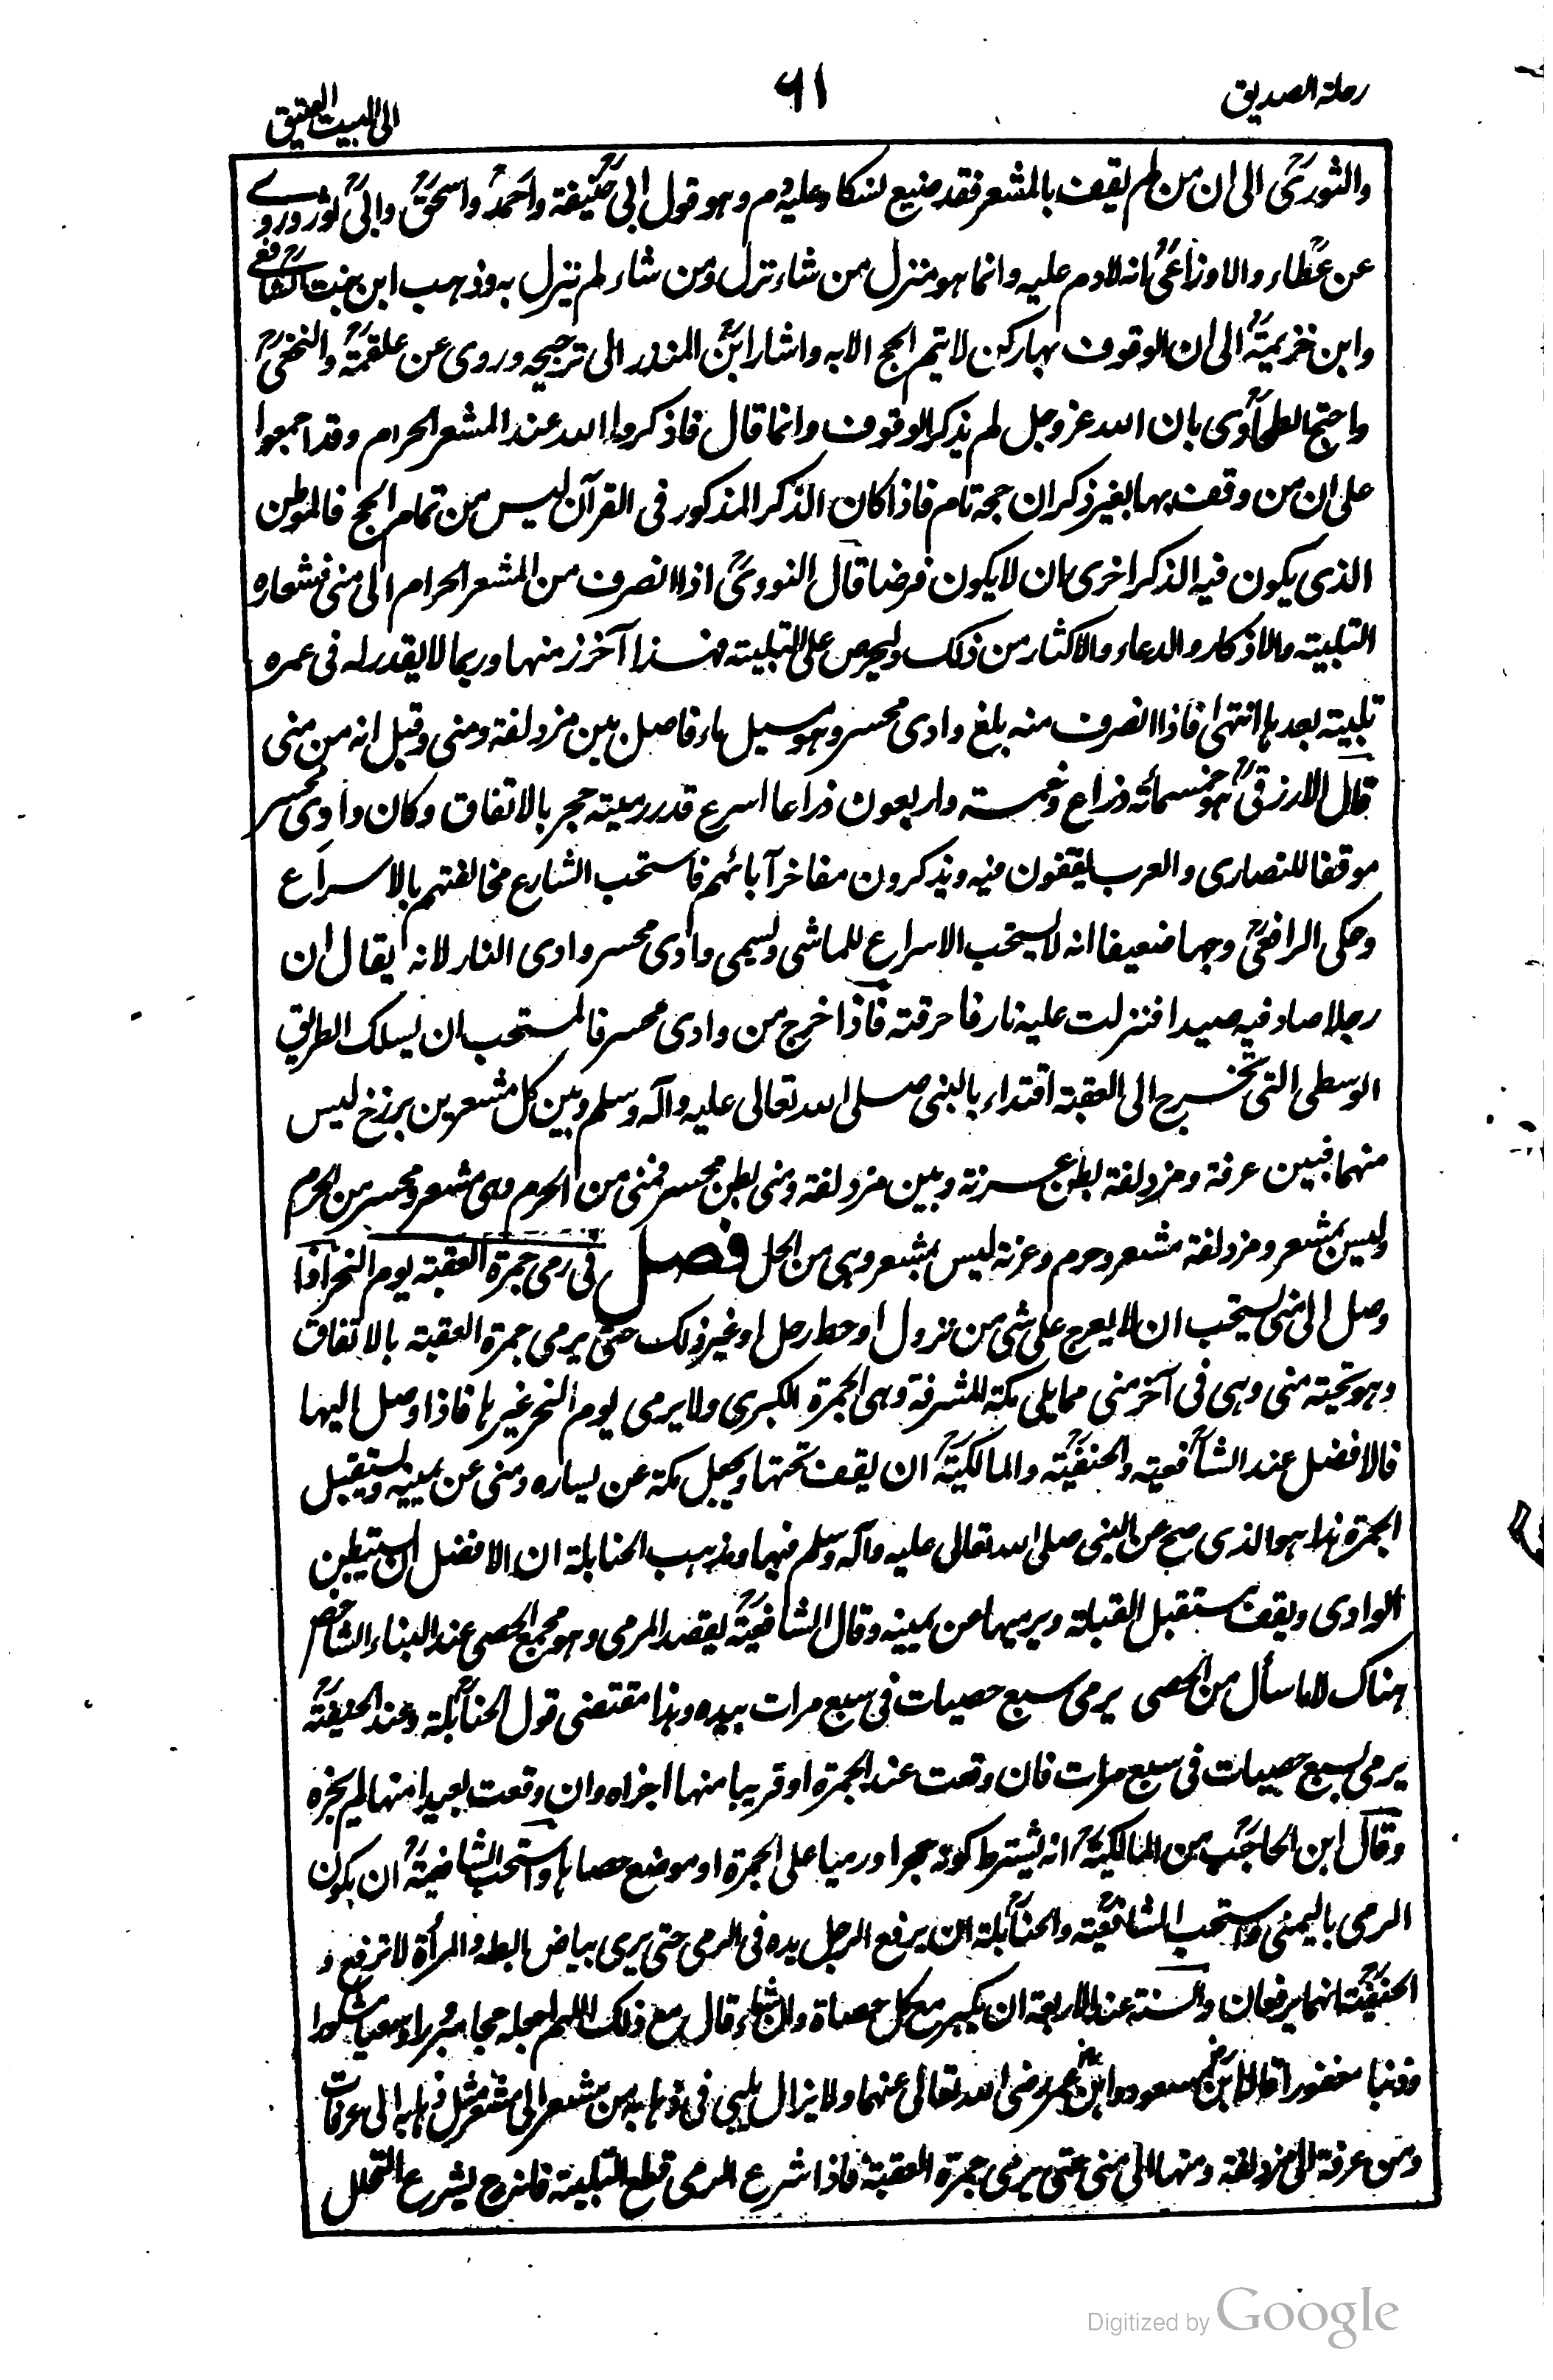 رحلة الصديق
٦١
الى البيت العتيق
والثوري الى ان من لم يقف بالمشعر فقد ضيع نسكا وعليه دم وهو قول ابي حنيفة واحمد واسحق وابي ثور وروى
عن عطاء والاوزاعي انه لا دم عليه وانما هو منزل من شاء نزل ومن شاء لم ينزل به وذهب ابن بنت الشافعي
وابن خزيمة الى ان الوقوف بها ركن لا يتم الحج الا به واشار ابن المنذر الى ترجيحه وروى عن علقمة والنخعي
واحتج الطحاوي بان الله عز وجل لم يذكر الوقوف وانما قال فاذكروا الله عند المشعر الحرام وقد اجمعوا
على ان من وقف بها بغير ذكر ان حجه تام فاذا كان الذكر المذكور في القرآن ليس من تمام الحج فالموطن
الذي يكون فيه الذكر احرى بان لا يكون فرضا قال النووي اذا انصرف من المشعر الحرام الى منى فشعاره
التلبية والاذكار والدعاء والاكثار من ذلك وليحرص على التلبية فهذا آخر زمنها وربما لا يقدر له في عمره
تلبية بعدها انتهى فاذا انصرف منه بلغ وادى محسر وهو مسيل ماء فاصل بين مزدلفة ومنى وقيل انه من منى
قال الازرقي هو خمسمائة ذراع وخمسة واربعون ذراعا اسرع قدر رمية حجر بالاتفاق وكان وادى محسر
موقفا للنصارى والعرب يقفون فيه ويذكرون مفاخر آبائهم فاستحب الشارع مخالفتهم بالاسراع
وحكى الرافعي وجها ضعيفا انه لا يستحب الاسراع للماشي ويسمى وادى محسر وادى النار لانه يقال ان
رجلا صاد فيه صيدا فنزلت عليه نار فاحرقته فاذا خرج من وادى محسر فالمستحب ان يسلك الطريق
الوسطى التي تخرج الى العقبة اقتداء بالنبي صلى الله تعالى عليه وآله وسلم وبين كل مشعرين برزخ ليس
منهما فبين عرفة ومزدلفة بطن عرنة وبين مزدلفة ومنى بطن محسر فمنى من الحرم وهي مشعر ومحسر من الحرم
وليس بمشعر ومزدلفة مشعر وحرم وعرنة ليس بمشعر وهي من الحل فصل في رمي جمرة العقبة يوم النحر اذا
وصل الى منى يستحب ان لا يعرج على شئ من نزول او حط رحل او غير ذلك حتى يرمي جمرة العقبة بالاتفاق
وهو تحية منى وهي في آخر منى مما يلي مكة المشرفة وهي الجمرة الكبرى ولا يرمي يوم النحر غيرها فاذا وصل اليها
فالافضل عند الشافعية والحنفية والمالكية ان يقف تحتها ويجعل مكة عن يساره ومنى عن يمينه ويستقبل
الجمرة هذا هو الذي صح عن النبي صلى الله تعالى عليه وآله وسلم فيها ومذهب الحنابلة ان الافضل ان يستبطن
الوادى ويقف مستقبل القبلة ويرميها عن يمينه وقال الشافعية يقصد المرمى وهو مجمع الحصى عند البناء الشاخص
هناك لا ما سأل من الحصى يرمي سبع حصيات في سبع مرات بيده وهذا مقتضى قول الحنابلة وعند الحنفية
يرمي بسبع حصيات في سبع مرات فان وقعت عند الجمرة او قريبا منها اجزاه وان وقعت بعيدا منها لم يجزه
وقال ابن الحاجب من المالكية انه يشترط كونه حجرا ورميا على الجمرة او موضع حصاها واستحب الشافعية ان يكون
الرمي باليمنى واستحب الشافعية والحنابلة ان يرفع الرجل يده في الرمي حتى يرى بياض ابطه والمرأة لا ترفع و
الحنفية انهما يرفعان والسنة عند الاربعة ان يكبر مع كل حصاة وان شاء قال مع ذلك اللهم اجعله حجا مبرورا وسعيا مشكورا
وذنبا مغفورا قاله ابن مسعود وابن عمر رضى الله تعالى عنهما ولا يزال يلبي في ذهابه من مشعر الى مشعر مثل ذهابه الى عرفات
ومن عرفة الى مزدلفة ومنها الى منى حتى يرمي جمرة العقبة فاذا شرع الرمي قطع التلبية فانه ح يشرع التحلل
Digitized by Google